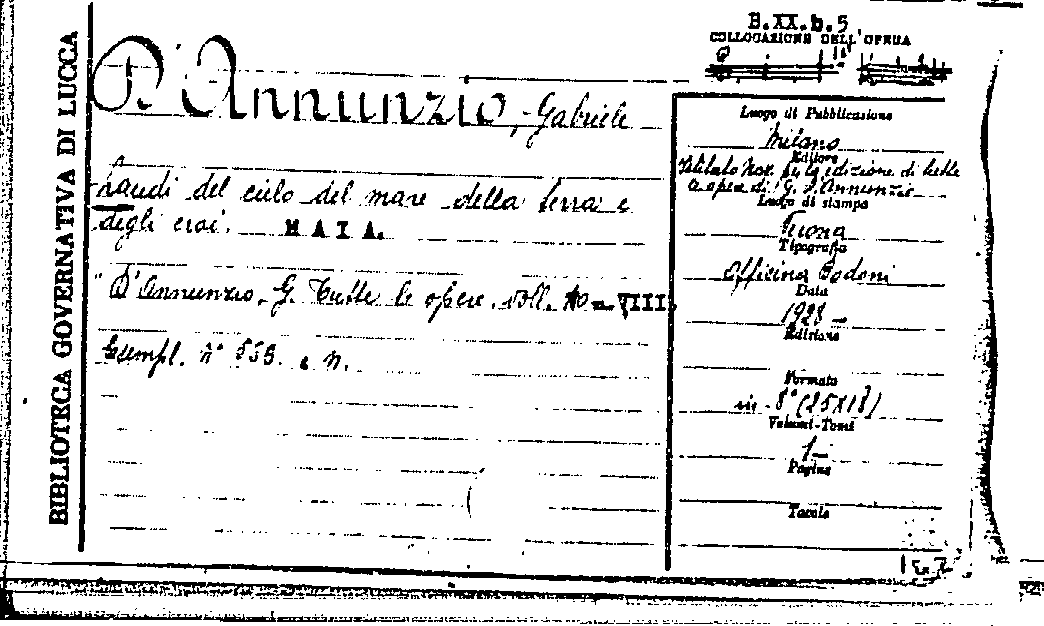 BIBLIOTECA GOVERNATIVA DI LUCCA
B.XX.b.5
COLLOCAZIONE DELL'OPERA
D'Annunzio, Gabriele
Laudi del cielo del mare della terra e
degli eroi. MAIA.
D'Annunzio, G. Tutte le opere. voll. VIII.
Esempl. n° 553. e n.
Luogo di Pubblicazione
Milano
Editore
Istituto Naz. per la edizione di tutte
le opere di G. D'Annunzio
Luogo di stampa
Verona
Tipografia
Officina Bodoni
Data
1928 -
Edizione
Formato
in - 8° (25X18)
Volumi-Tomi
1 -
Pagine
Tavole